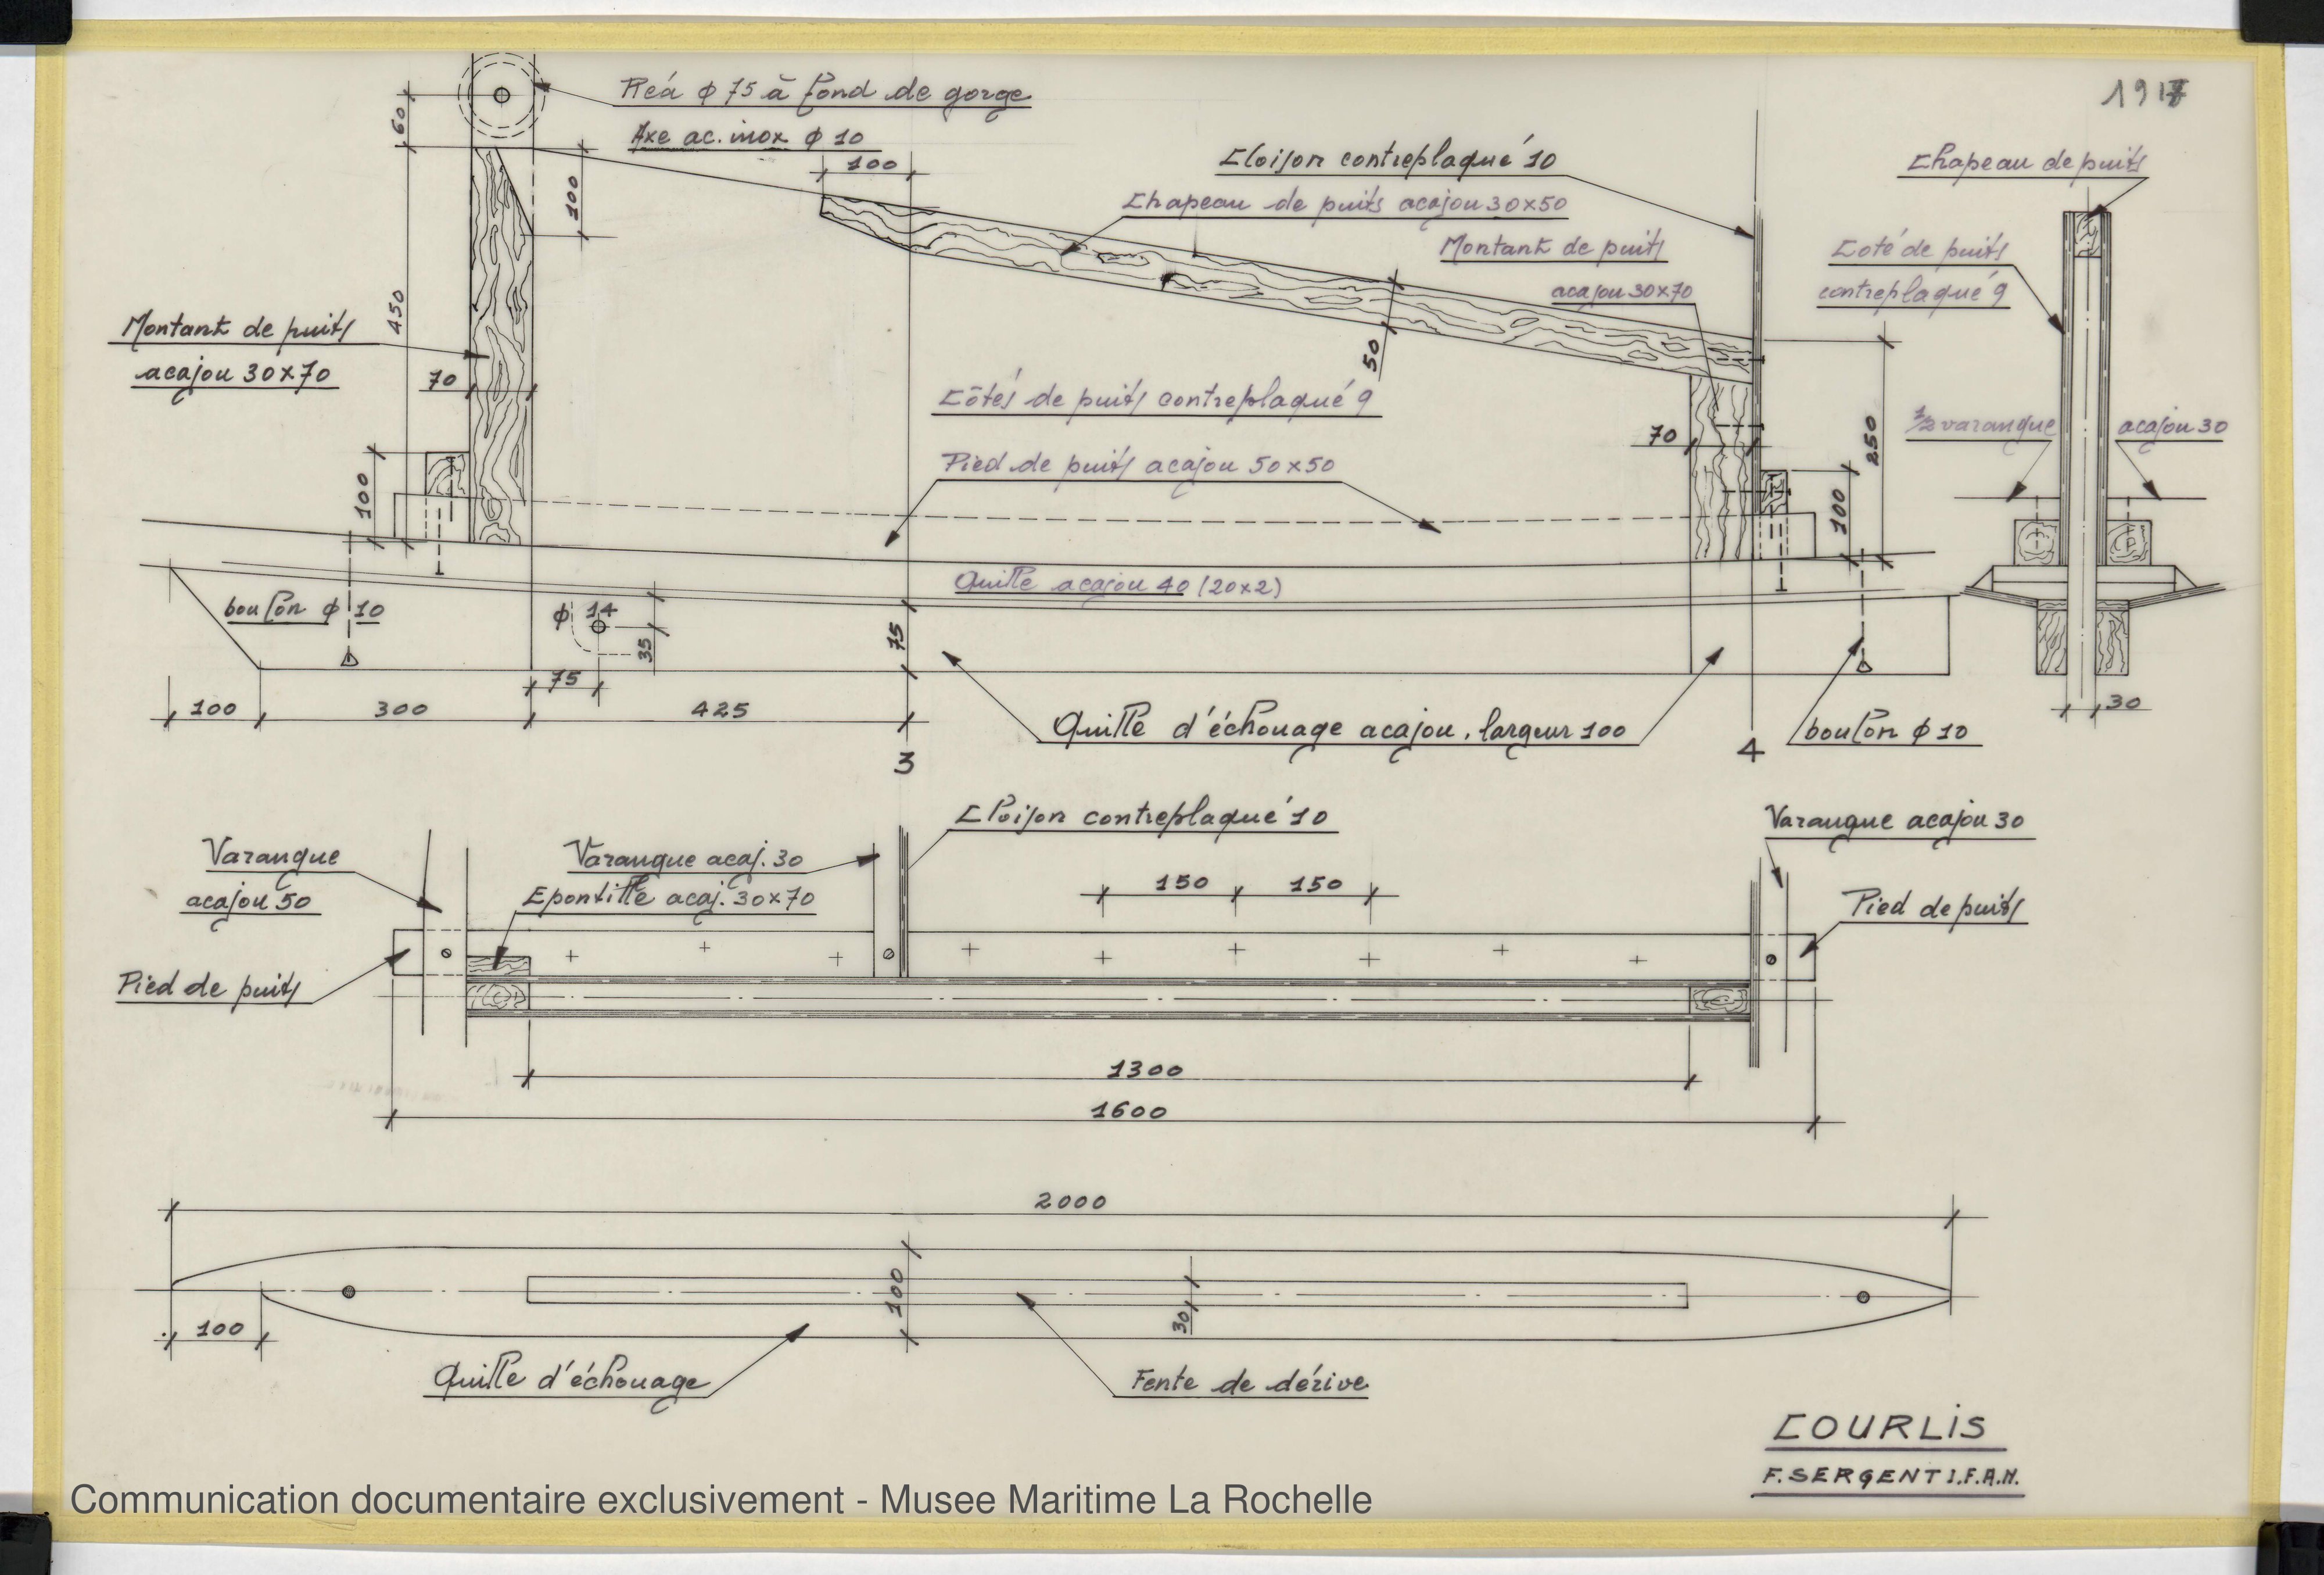 Réa φ 75 à fond de gorge
Axe ac. inox φ 10
60
100
100
Cloison contreplaqué 10
Chapeau de puits acajou 30x50
Montant de puits
acajou 30x70
Chapeau de puits
Coté de puits
contreplaqué 9
450
Montant de puits
acajou 30x70
70
50
Côtés de puits contreplaqué 9
Pied de puits acajou 50x50
70
250
1/2 varangue
acajou 30
100
100
Quille acajou 40 (20x2)
boulon φ 10
φ 14
35
75
75
100
300
425
Quille d'échouage acajou, largeur 100
boulon φ 10
30
3
4
Cloison contreplaqué 10
Varangue
acajou 50
Varangue acaj. 30
Epontille acaj. 30x70
150
150
Varangue acajou 30
Pied de puits
Pied de puits
1300
1600
2000
100
30
100
Quille d'échouage
Fente de dérive
COURLIS
F. SERGENT I.F.A.N.
Communication documentaire exclusivement - Musee Maritime La Rochelle